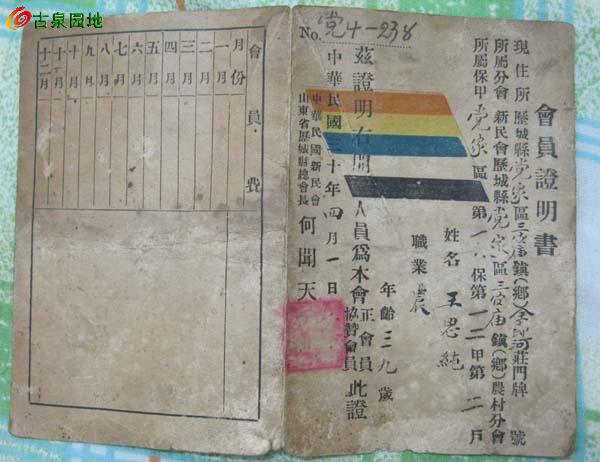 古泉园地
No. 党4-238
會員證明書
現住所歷城縣党家區三官庙鎮(鄉)河莊門牌 號
所屬分會 新民會歷城縣党家區三官庙鎮(鄉)農村分會
所屬保甲党家區第一八保第一二甲第二戶
姓名 王思純
職業 農
年齡三九歲
茲證明右開人員爲本會正會員協贊會員此證
中華民國三十年四月一日
中華民國新民會
山東省歷城縣總會長 何聞天
會員費
月份
一月
二月
三月
四月
五月
六月
七月
八月
九月
十月
十一月
十二月